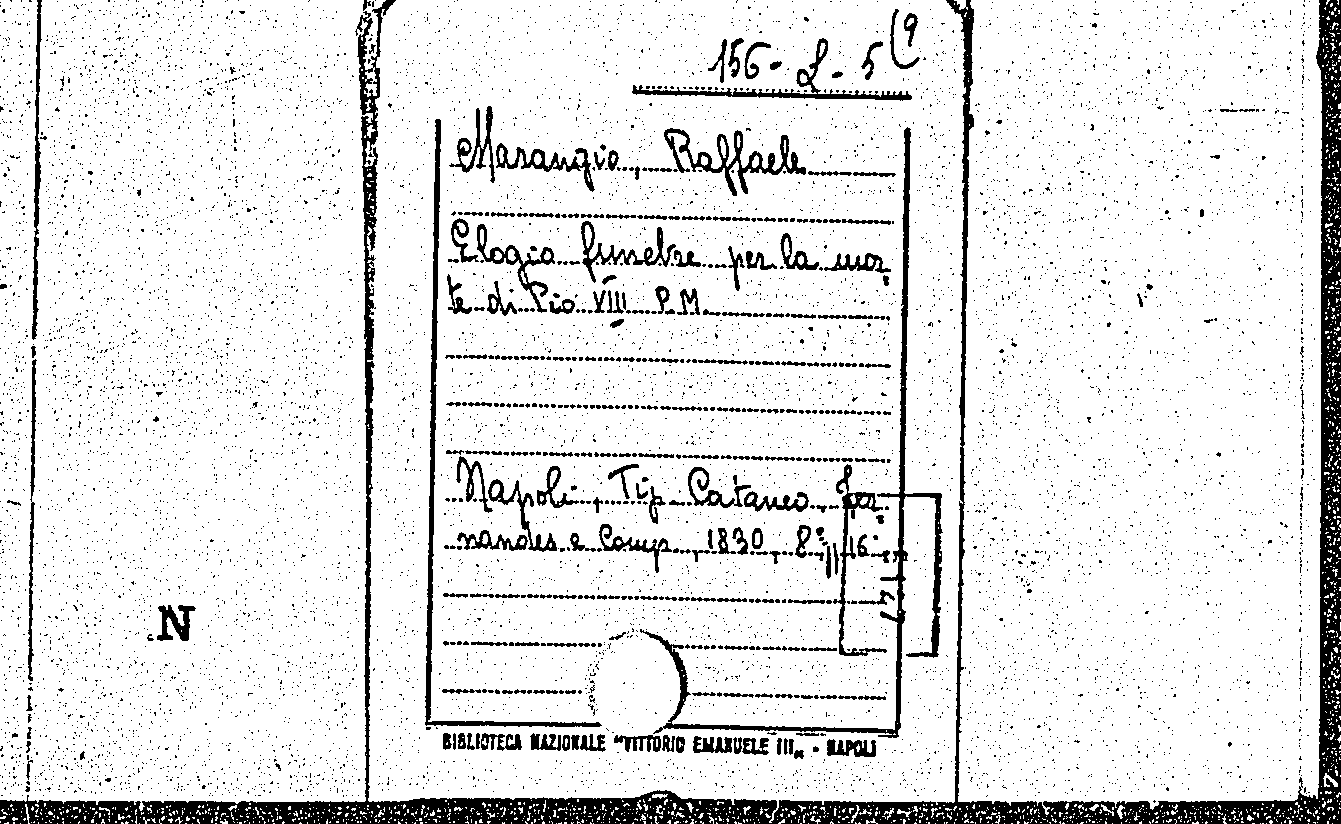 156- L- 5(9
Marangio, Raffaele
Elogio funebre per la mor-
te di Pio VIII P.M.
Napoli, Tip. Cataneo, Fer-
nandes e Comp., 1830, 8°, 16°
N
BIBLIOTECA NAZIONALE "VITTORIO EMANUELE III„ - NAPOLI